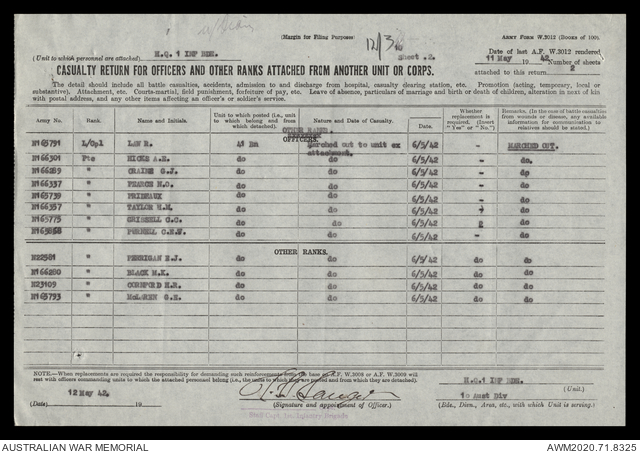 (Margin for Filing Purposes)
ARMY FORM W.3012 (BOOKS OF 100).
H.Q. 1 INF BDE.
(Unit to which personnel are attached).
Sheet .2.
Date of last A.F. W.3012 rendered
11 May 19 42. Number of sheets
attached to this return 2
CASUALTY RETURN FOR OFFICERS AND OTHER RANKS ATTACHED FROM ANOTHER UNIT OR CORPS.
The detail should include all battle casualties, accidents, admission to and discharge from hospital, casualty clearing station, etc. Promotion (acting, temporary, local or
substantive), Attachment, etc. Courts-martial, field punishment, forfeiture of pay, etc. Leave of absence, particulars of marriage and birth or death of children, alteration in next of kin
with postal address, and any other items affecting an officer's or soldier's service.
Army No. Rank. Name and Initials. Unit to which posted (i.e., unit to which belong and from which detached). Nature and Date of Casualty. Date. Whether replacement is required. (Insert "Yes" or "No.") Remarks. (In the case of battle casualties from wounds or disease, any available information for communication to relatives should be stated.)
OTHER RANKS.
OFFICERS.
N165791 L/Cpl LAW R. 41 Bn Marched out to unit ex attachment. 6/5/42 - MARCHED OUT.
N166301 Pte HICKS A.H. do do 6/5/42 - do.
N166289 " CRAINE G.J. do do 6/5/42 - do
N166337 " PEARCE N.O. do do 6/5/42 - do
N165739 " PRIDEAUX do do 6/5/42 - do
N166357 " TAYLOR H.M. do do 6/5/42 do
N165775 " GRISSELL C.C. do do 6/5/42 do
" PURNELL C.H.F. do do 6/5/42 - do
OTHER RANKS.
N22581 " FERRIGAN E.J. do do 6/5/42 do do
N166280 " BLACK M.K. do do 6/5/42 do do
N23109 " CORNFORD H.R. do do 6/5/42 do do
N165793 " McLAREN G.H. do do 6/5/42 do do
NOTE.—When replacements are required the responsibility for demanding such reinforcements from the base on A.F. W.3008 or A.F. W.3009 will
rest with officers commanding units to which the attached personnel belong (i.e., the units to which they are posted and from which they are detached).
H.Q.1 INF BDE.
(Unit.)
12 May 42.
(Date) 19
(Signature and appointment of Officer.)
1o Aust Div
(Bde., Divn., Area, etc., with which Unit is serving.)
AUSTRALIAN WAR MEMORIAL
AWM2020.71.8325